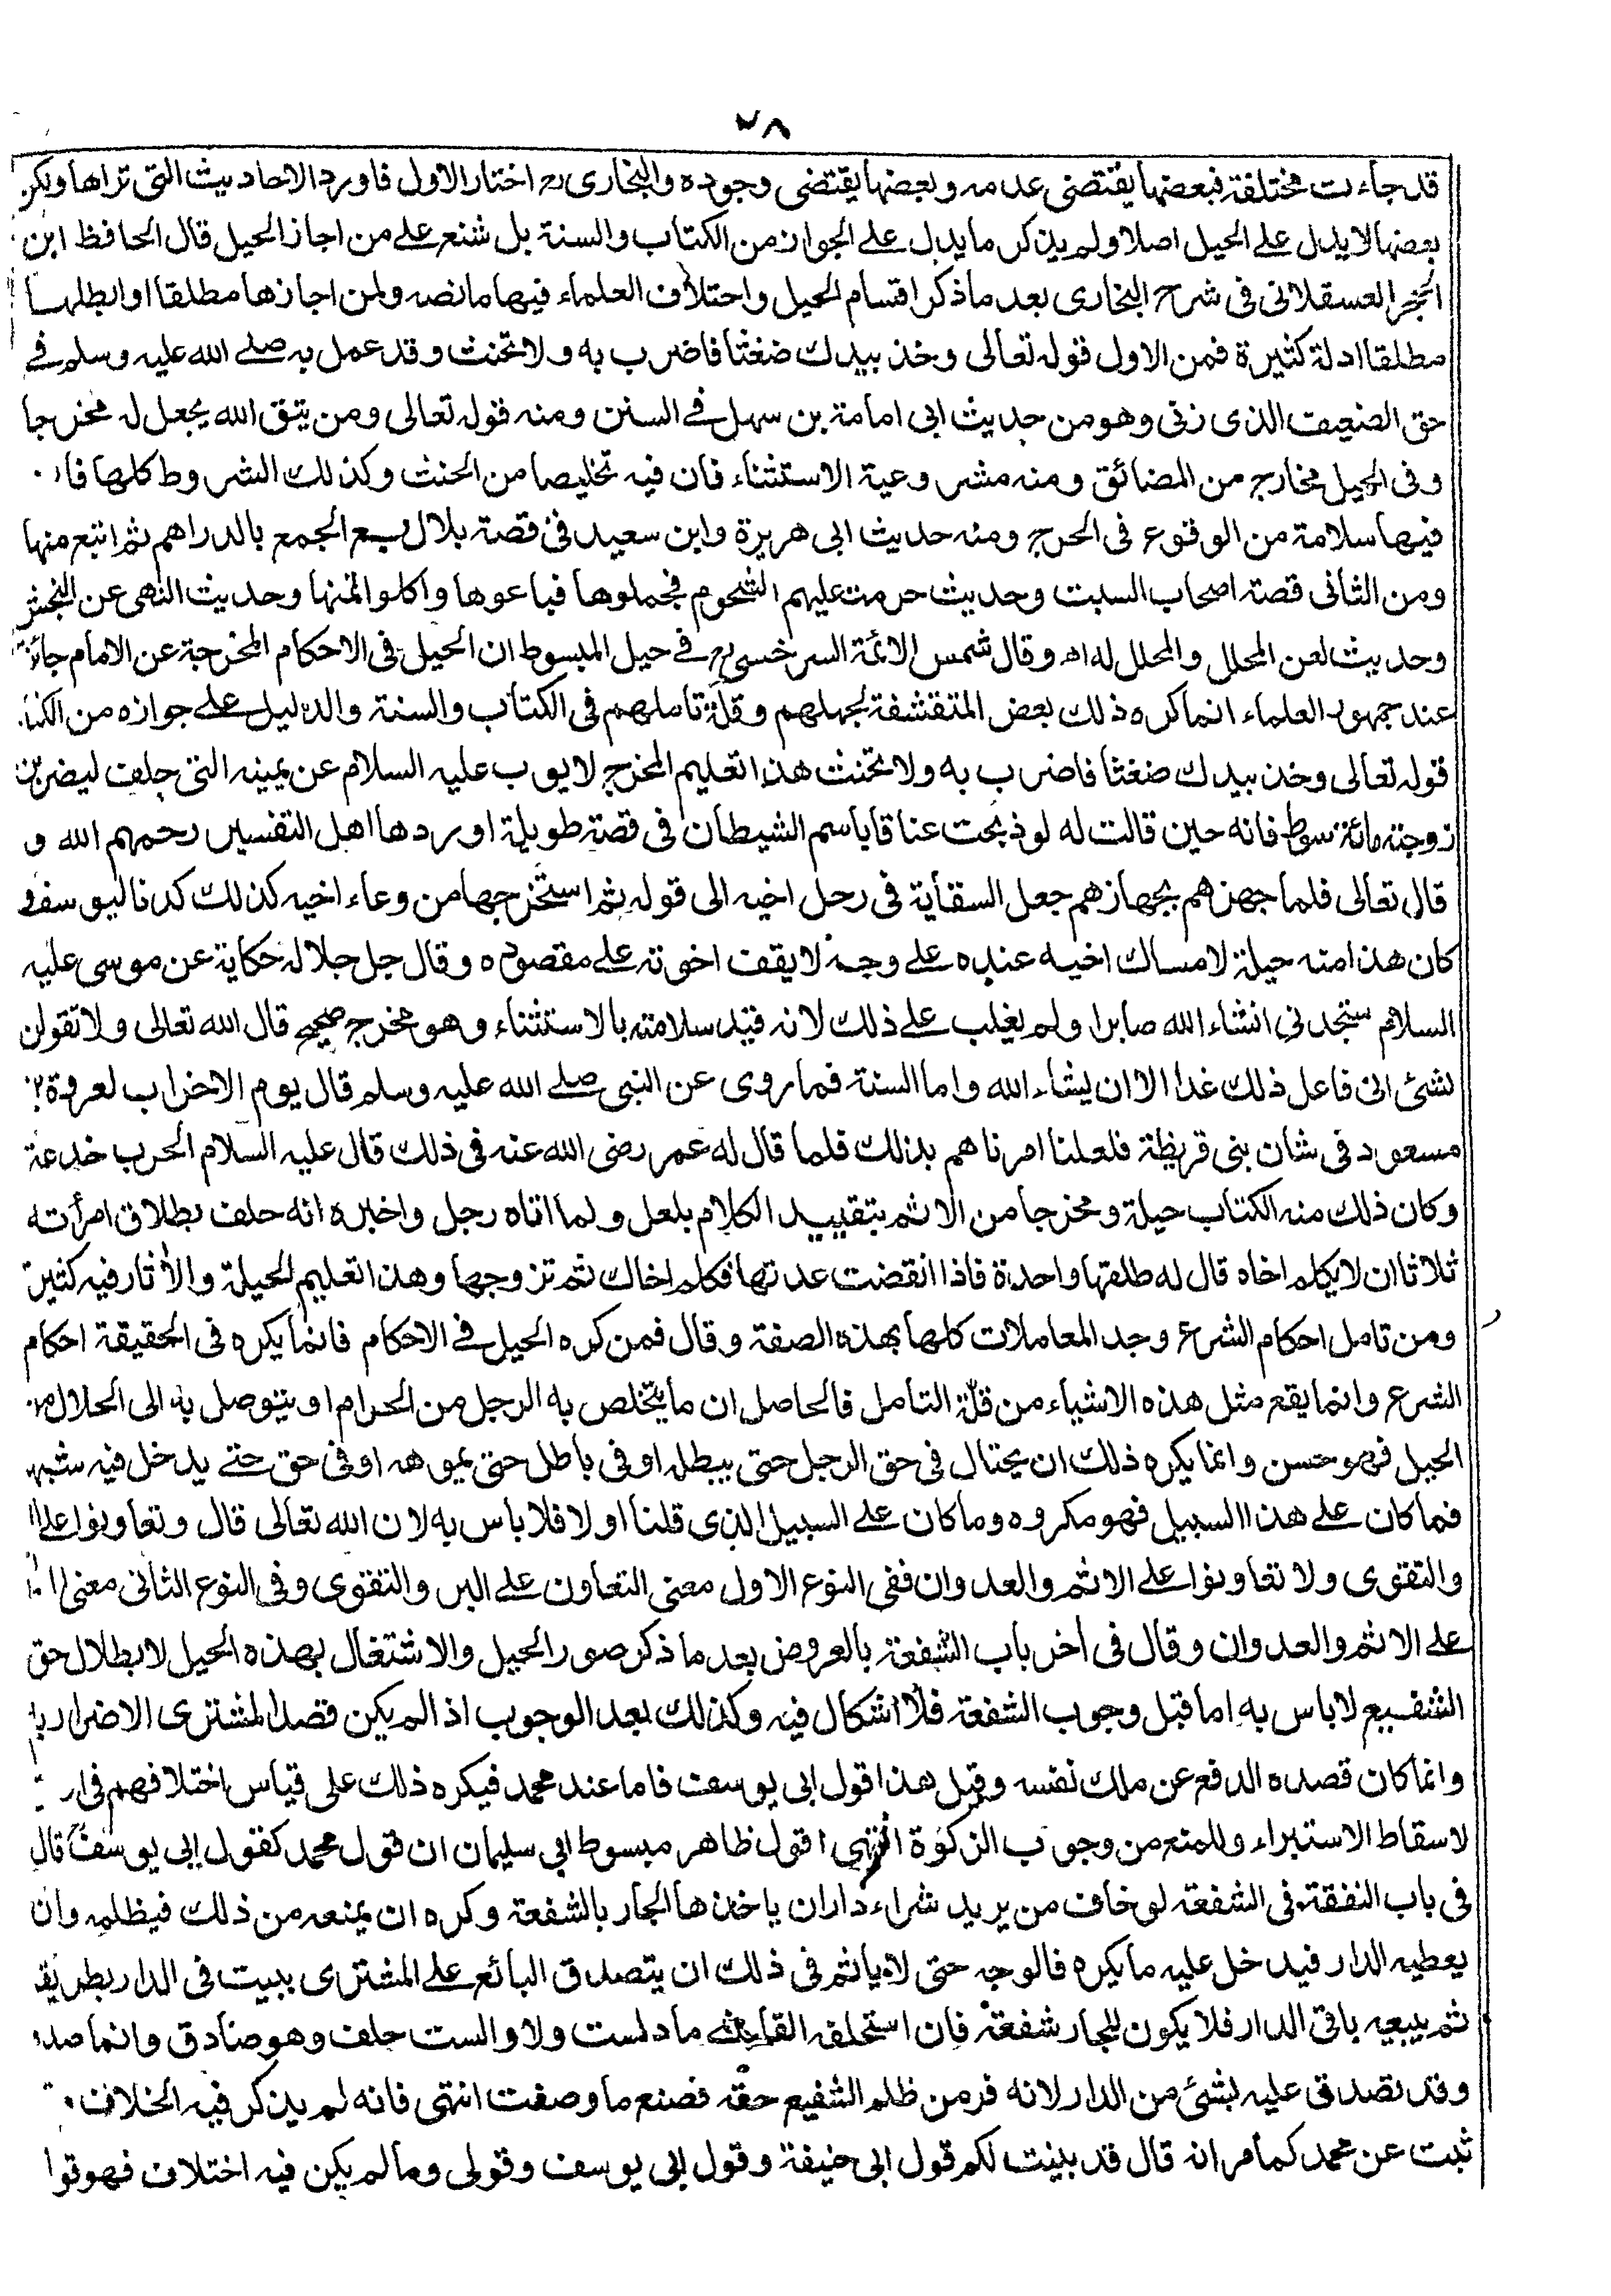 ٧٨
قد جاءت مختلفة فبعضها يقتضى عدمه وبعضها يقتضى وجوده والبخارى رح اختار الاول فاورد الاحاديث التى تراها ولكن
بعضها لا يدل على الحيل اصلا ولم يذكر ما يدل على الجواز من الكتاب والسنة بل شنع على من اجاز الحيل قال الحافظ ابن
الحجر العسقلانى فى شرح البخارى بعد ما ذكر اقسام الحيل واختلاف العلماء فيها ما نصه ولمن اجازها مطلقا او ابطلها
مطلقا ادلة كثيرة فمن الاول قوله تعالى وخذ بيدك ضغثا فاضرب به ولا تحنث وقد عمل به صلى الله عليه وسلم فى
حق الضعيف الذى زنى وهو من حديث ابى امامة بن سهل فى السنن ومنه قوله تعالى ومن يتق الله يجعل له مخرجا
وفى الحيل مخارج من المضائق ومنه مشروعية الاستثناء فان فيه تخليصا من الحنث وكذلك الشروط كلها فان
فيها سلامة من الوقوع فى الحرج ومنه حديث ابى هريرة وابن سعيد فى قصة بلال بع الجمع بالدراهم ثم اتبع منها
ومن الثانى قصة اصحاب السبت وحديث حرمت عليهم الشحوم فجملوها فباعوها واكلوا ثمنها وحديث النهى عن النجش
وحديث لعن المحلل والمحلل له اه وقال شمس الائمة السرخسى رح فى حيل المبسوط ان الحيل فى الاحكام المخرجة عن الامام جائزة
عند جمهور العلماء انما كره ذلك بعض المتقشفة لجهلهم وقلة تاملهم فى الكتاب والسنة والدليل على جوازه من الكتاب
قوله تعالى وخذ بيدك ضغثا فاضرب به ولا تحنث هذا تعليم المخرج لايوب عليه السلام عن يمينه التى حلف ليضربن
زوجته مائة سوط فانه حين قالت له لو ذبحت عناقا باسم الشيطان فى قصة طويلة اوردها اهل التفسير رحمهم الله و
قال تعالى فلما جهزهم بجهازهم جعل السقاية فى رحل اخيه الى قوله ثم استخرجها من وعاء اخيه كذلك كدنا ليوسف و
كان هذا منه حيلة لامساك اخيه عنده على وجه لا يقف اخوته على مقصوده وقال جل جلاله حكاية عن موسى عليه
السلام ستجدنى انشاء الله صابرا ولم يغلب على ذلك لانه قيد سلامته بالاستثناء وهو مخرج صحيح قال الله تعالى ولا تقولن
لشئ انى فاعل ذلك غدا الا ان يشاء الله واما السنة فما روى عن النبى صلى الله عليه وسلم قال يوم الاحزاب لعروة بن
مسعود فى شان بنى قريظة فلعلنا امرناهم بذلك فلما قال له عمر رضى الله عنه فى ذلك قال عليه السلام الحرب خدعة
وكان ذلك منه الكتاب حيلة ومخرجا من الاثم بتقييد الكلام بلعل ولما اتاه رجل واخبره انه حلف بطلاق امرأته
ثلاثا ان لا يكلم اخاه قال له طلقها واحدة فاذا انقضت عدتها فكلم اخاك ثم تزوجها وهذا تعليم الحيلة والأثار فيه كثيرة
ومن تامل احكام الشرع وجد المعاملات كلها بهذه الصفة وقال فمن كره الحيل فى الاحكام فانما يكره فى الحقيقة احكام
الشرع وانما يقع مثل هذه الاشياء من قلة التأمل فالحاصل ان ما يتخلص به الرجل من الحرام او يتوصل به الى الحلال من
الحيل فهو حسن وانما يكره ذلك ان يحتال فى حق الرجل حتى يبطله او فى باطل حتى يموهه او فى حق حتى يدخل فيه شبهة
فما كان على هذا السبيل فهو مكروه وما كان على السبيل الذى قلنا اولا فلا باس به لان الله تعالى قال وتعاونوا على
والتقوى ولا تعاونوا على الاثم والعدوان ففى النوع الاول معنى التعاون على البر والتقوى وفى النوع الثانى معنى
على الاثم والعدوان وقال فى أخر باب الشفعة بالعروض بعد ما ذكر صور الحيل والاشتغال بهذه الحيل لابطال حق
الشفيع لا باس به اما قبل وجوب الشفعة فلا اشكال فيه وكذلك بعد الوجوب اذا لم يكن قصد المشترى الاضرار به
وانما كان قصده الدفع عن ملك نفسه وقيل هذا قول ابى يوسف فاما عند محمد فيكره ذلك على قياس اختلافهم فى
لاسقاط الاستبراء وللمنع من وجوب الزكوة انتهى اقول ظاهر مبسوط ابى سليمان ان قول محمد كقول ابى يوسف قال
فى باب النفقة فى الشفعة لو خاف من يريد شراء دار ان ياخذها الجار بالشفعة وكره ان يمنعه من ذلك فيظلمه وان
يعطيه الدار فيدخل عليه ما يكره فالوجه حتى لا ياثم فى ذلك ان يتصدق البائع على المشترى ببيت فى الدار بطريقه
ثم يبيعه باقى الدار فلا يكون للجار شفعة فان استحلفه القاضى ما دلست ولا والست حلف وهو صادق وانما
وقد تصدق عليه بشئ من الدار لانه فر من ظلم الشفيع حقه فصنع ما وصفت انتهى فانه لم يذكر فيه الخلاف
ثبت عن محمد كما مر انه قال قد بينت لكم قول ابى حنيفة وقول ابى يوسف وقولى وما لم يكن فيه اختلاف فهو